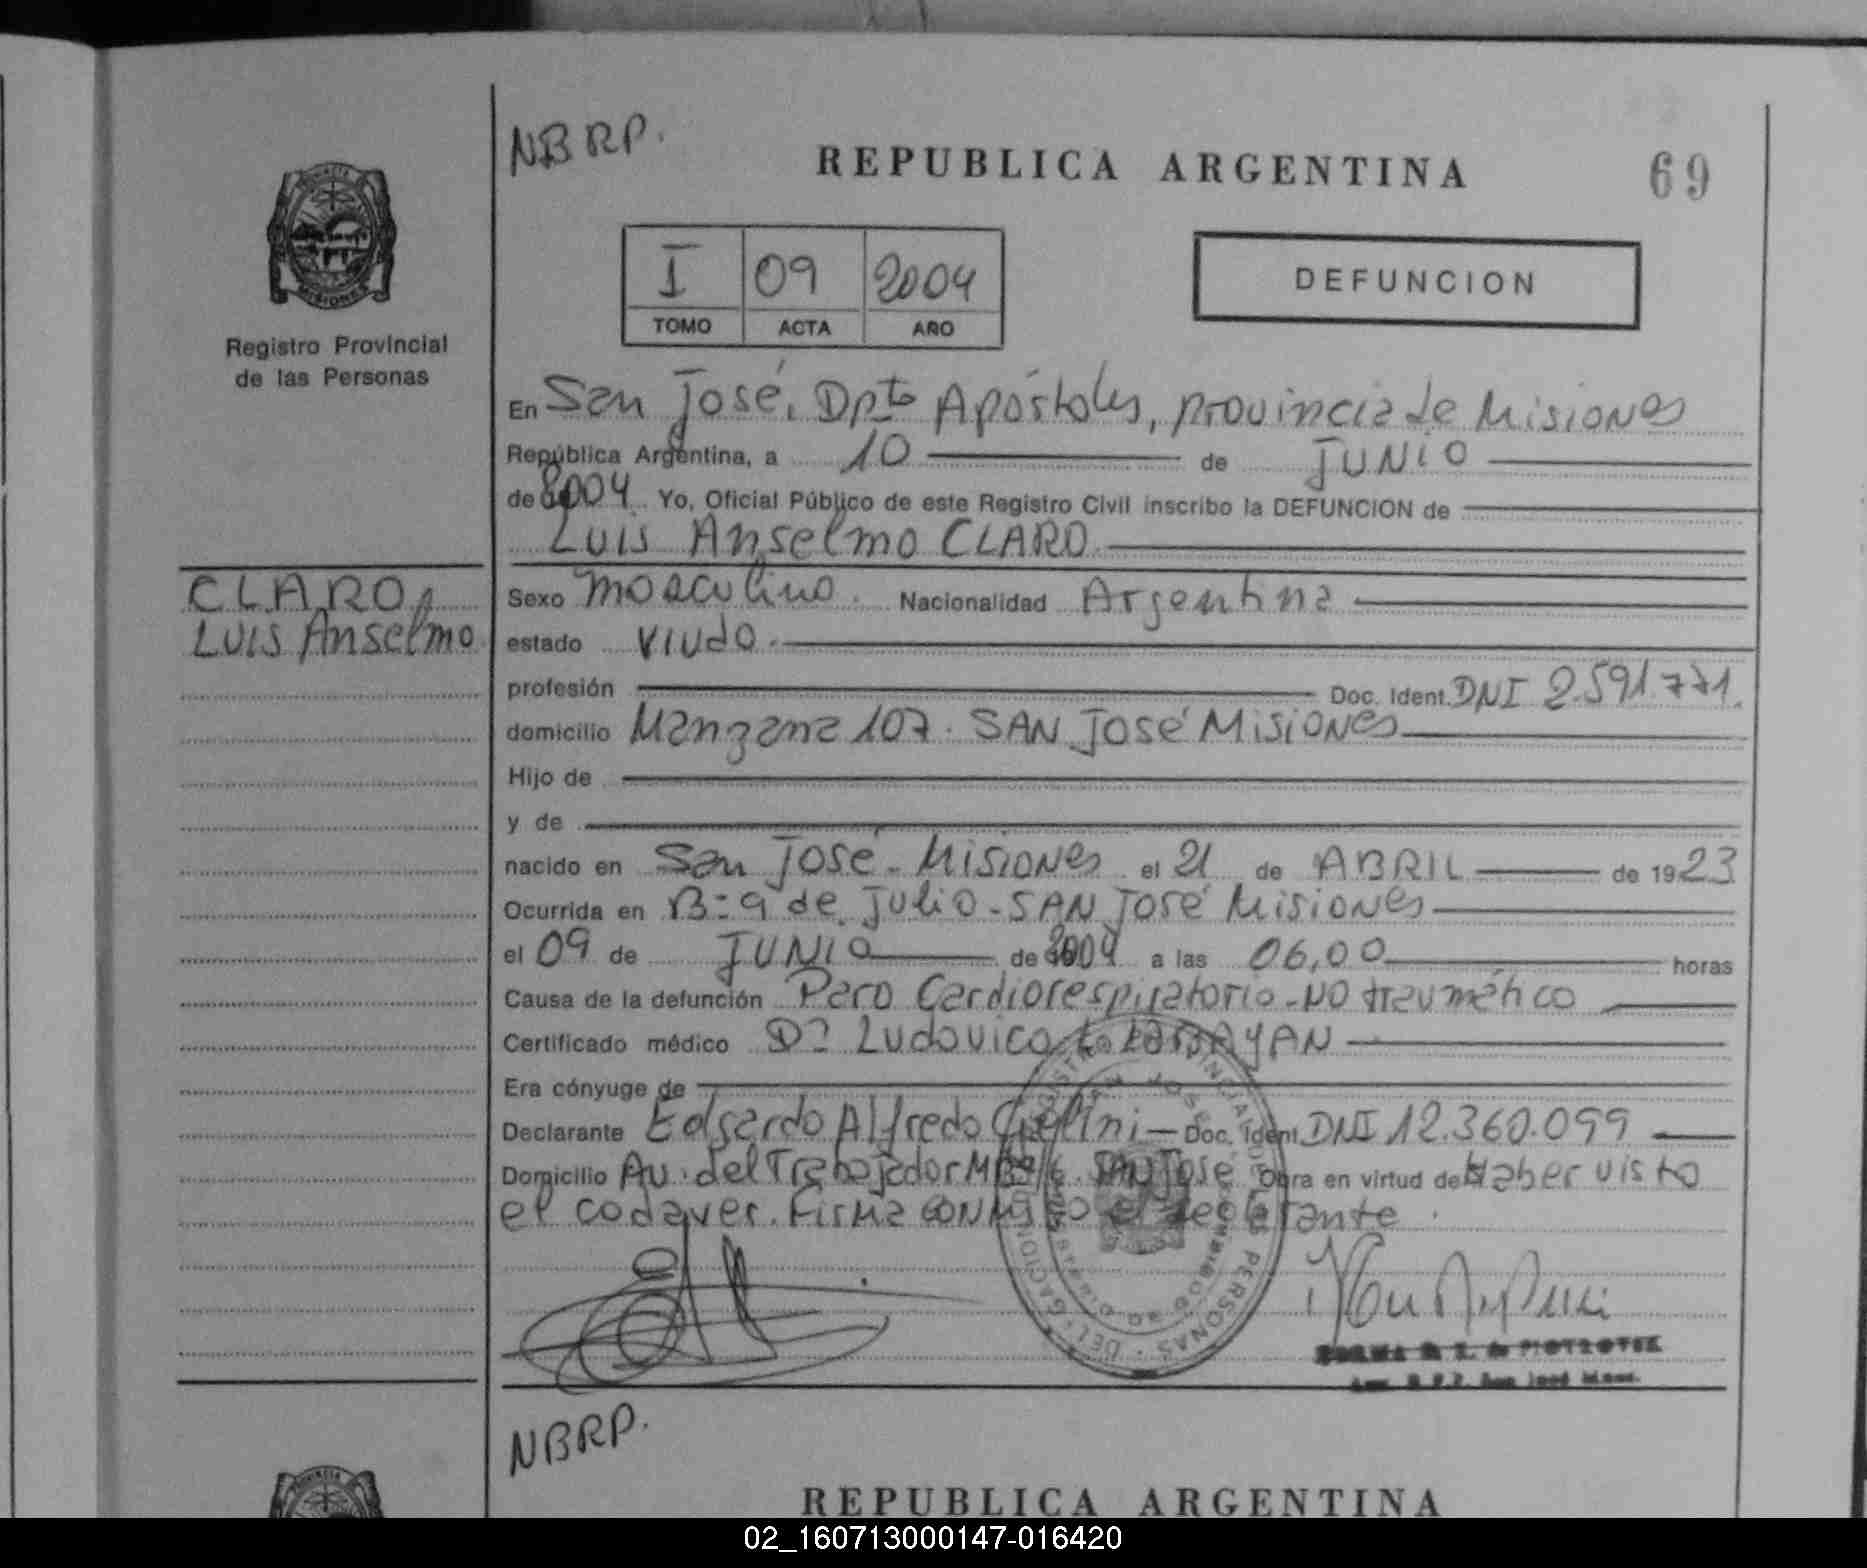 NBRP.
REPUBLICA ARGENTINA
69
I 09 2004
TOMO ACTA AÑO
DEFUNCION
Registro Provincial
de las Personas
En San José, Dpto Apóstoles, provincia de Misiones
República Argentina, a 10 de JUNIO
de 2004. Yo, Oficial Público de este Registro Civil inscribo la DEFUNCION de
Luis Anselmo CLARO
CLARO,
LUIS Anselmo
Sexo masculino. Nacionalidad Argentina
estado viudo.
profesión Doc. Ident. DNI 2.591.771.
domicilio Manzana 107. SAN José Misiones
Hijo de
y de
nacido en San José - Misiones el 21 de ABRIL de 1923
Ocurrida en B= 9 de Julio - SAN José Misiones
el 09 de JUNIO de 2004 a las 06,00 horas
Causa de la defunción Paro Cardiorespiratorio - NO traumático
Certificado médico Dr Ludovico
Era cónyuge de
Declarante Edgardo Alfredo Doc. Ident. DNI 12.360.099
Domicilio Av. del Trabajador SAN José Obra en virtud de Haber visto
el cadaver. Firma CONMIGO el declarante.
NBRP.
REPUBLICA ARGENTINA
02_160713000147-016420